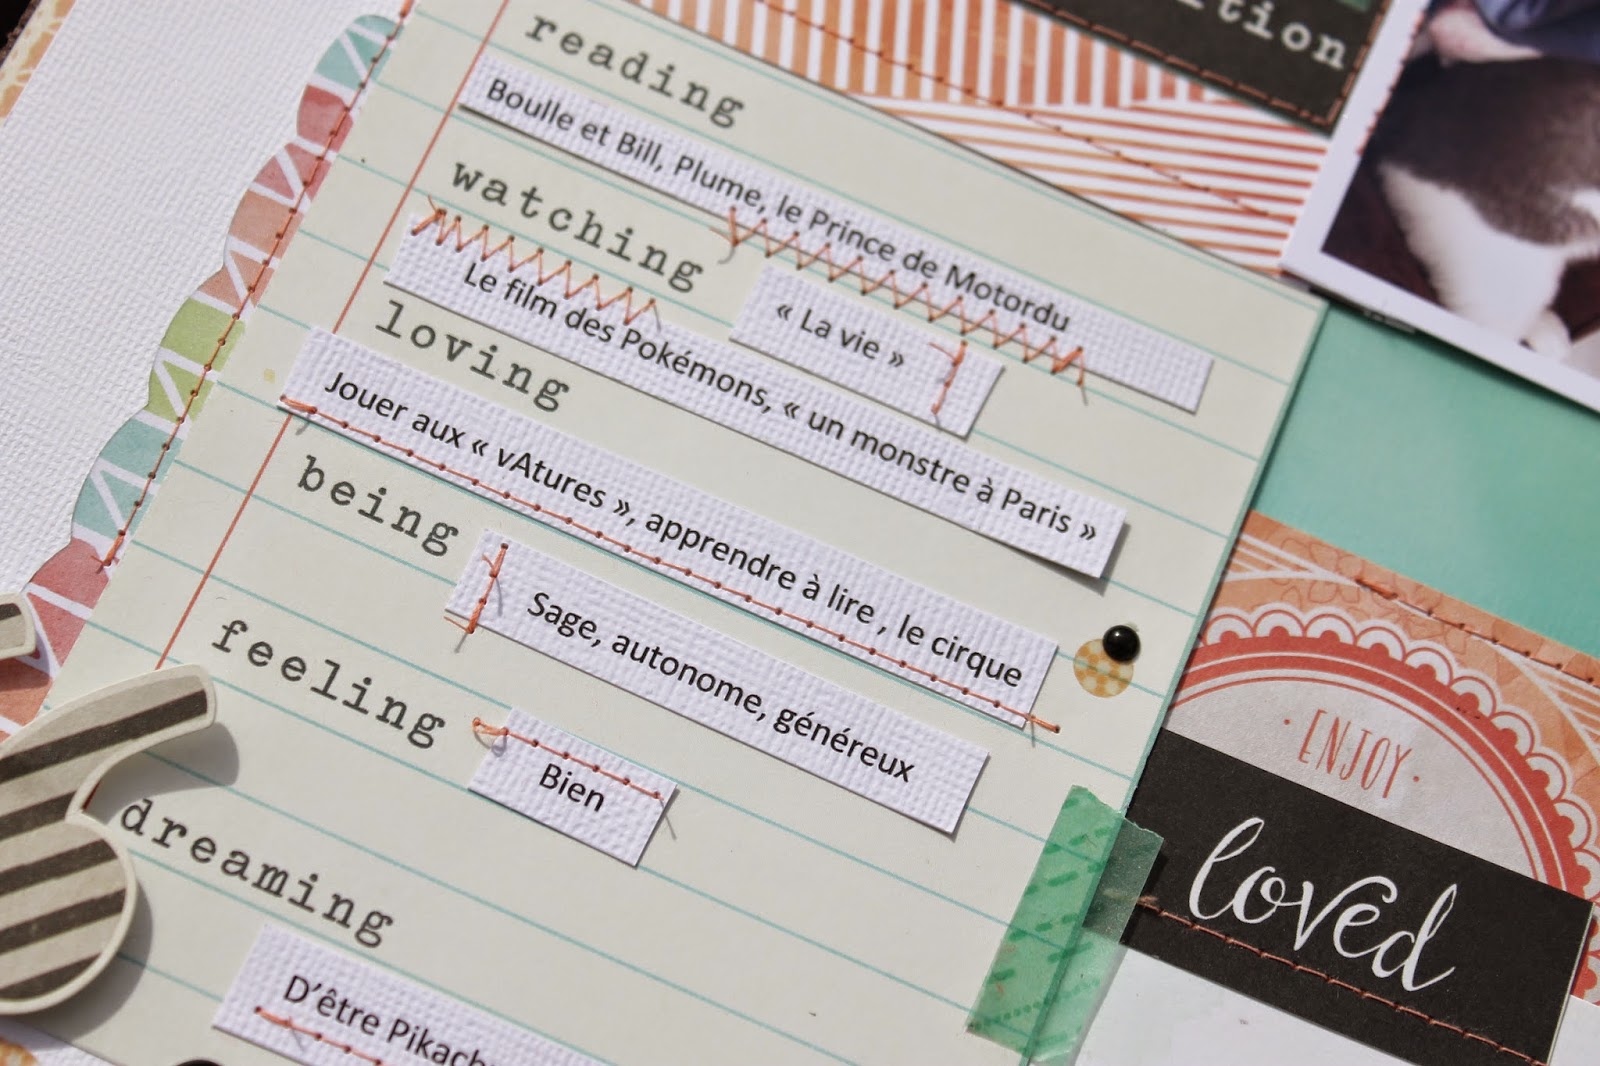 reading
Boulle et Bill, Plume, le Prince de Motordu
watching
« La vie »
Le film des Pokémons, « un monstre à Paris »
loving
Jouer aux « vAtures », apprendre à lire , le cirque
being
Sage, autonome, généreux
feeling
Bien
dreaming
D’être Pikach
ition
· ENJOY ·
loved